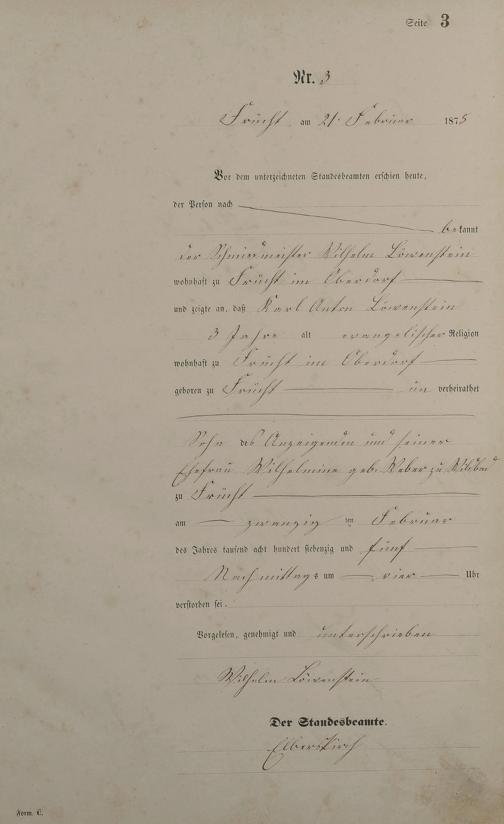 Seite 3
Nr. 3
Frücht am 21. Februar 1875
Vor dem unterzeichneten Standesbeamten erschien heute,
der Person nach
bekannt
der Schmiedmeister Wilhelm Löwenstein
wohnhaft zu Frücht im Oberdorf
und zeigte an, daß Karl Anton Löwenstein
3 Jahre alt evangelischer Religion
wohnhaft zu Frücht im Oberdorf
geboren zu Frücht un verheirathet
Sohn des Anzeigenden und seiner
Ehefrau Wilhelmine geb. Weber zu
zu Frücht
am zwanzig ten Februar
des Jahres tausend acht hundert siebenzig und fünf
Nachmittags um vier Uhr
verstorben sei.
Vorgelesen, genehmigt und unterschrieben
Wilhelm Löwenstein
Der Standesbeamte.
Elberskirch
Form. C.